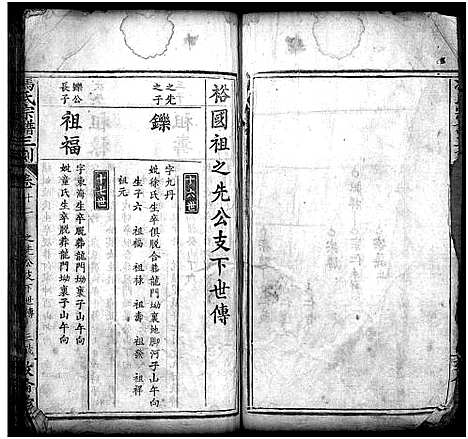 裕國祖之先公支下世傳
十六世
之先
之子
鑠
字九丹
妣徐氏生卒俱脫合葬龍門坳裏地脚河子山午向
生子六 祖福 祖祿 祖壽 祖發 祖祥
祖元
十七世
鑠公
長子
祖福
字東海生卒脫葬龍門坳裏子山午向
妣童氏生卒脫葬龍門坳裏子山午向
馮氏宗譜三刻
卷十
公支下世傳